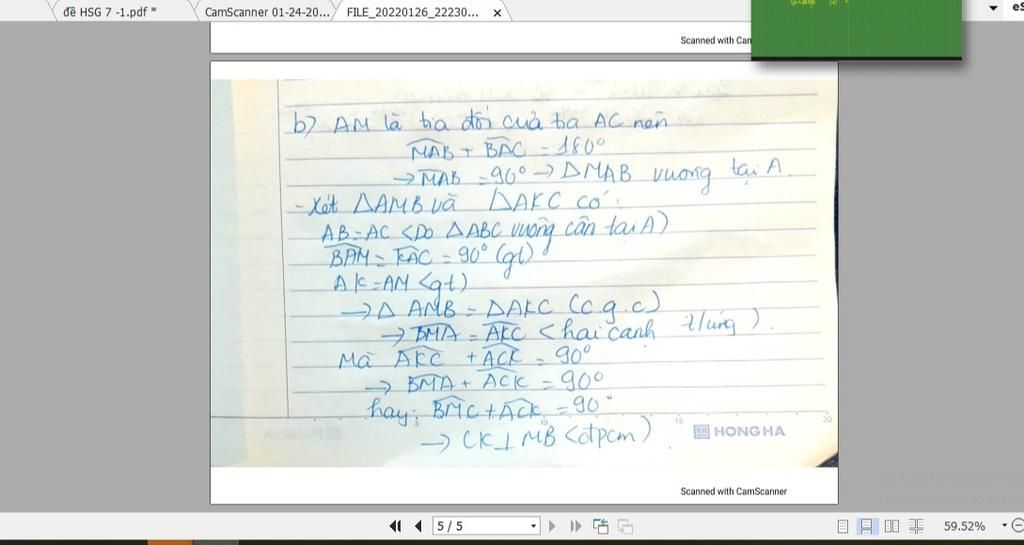 đề HSG 7 -1.pdf *
CamScanner 01-24-20...
FILE_20220126_22230...
eS
Scanned with Can
b) AM là tia đối của tia AC nên
MAB + BAC = 180°
→ MAB = 90° → ΔMAB vuong tại A.
- Xét ΔAMB và ΔAKC có:
AB = AC <Do ΔABC vuông cân tại A)
BAM = KAC = 90° (gt)
AK = AM <gt)
→ Δ AMB = ΔAKC (c.g.c)
→ BMA = AKC <hai canh t/ứng).
Mà AKC + ACK = 90°
→ BMA + ACK = 90°
hay: BMC + ACK = 90°
→ CK ⊥ MB <đpcm)
10 15 20
HONG HA
Scanned with CamScanner
5 / 5
59.52%